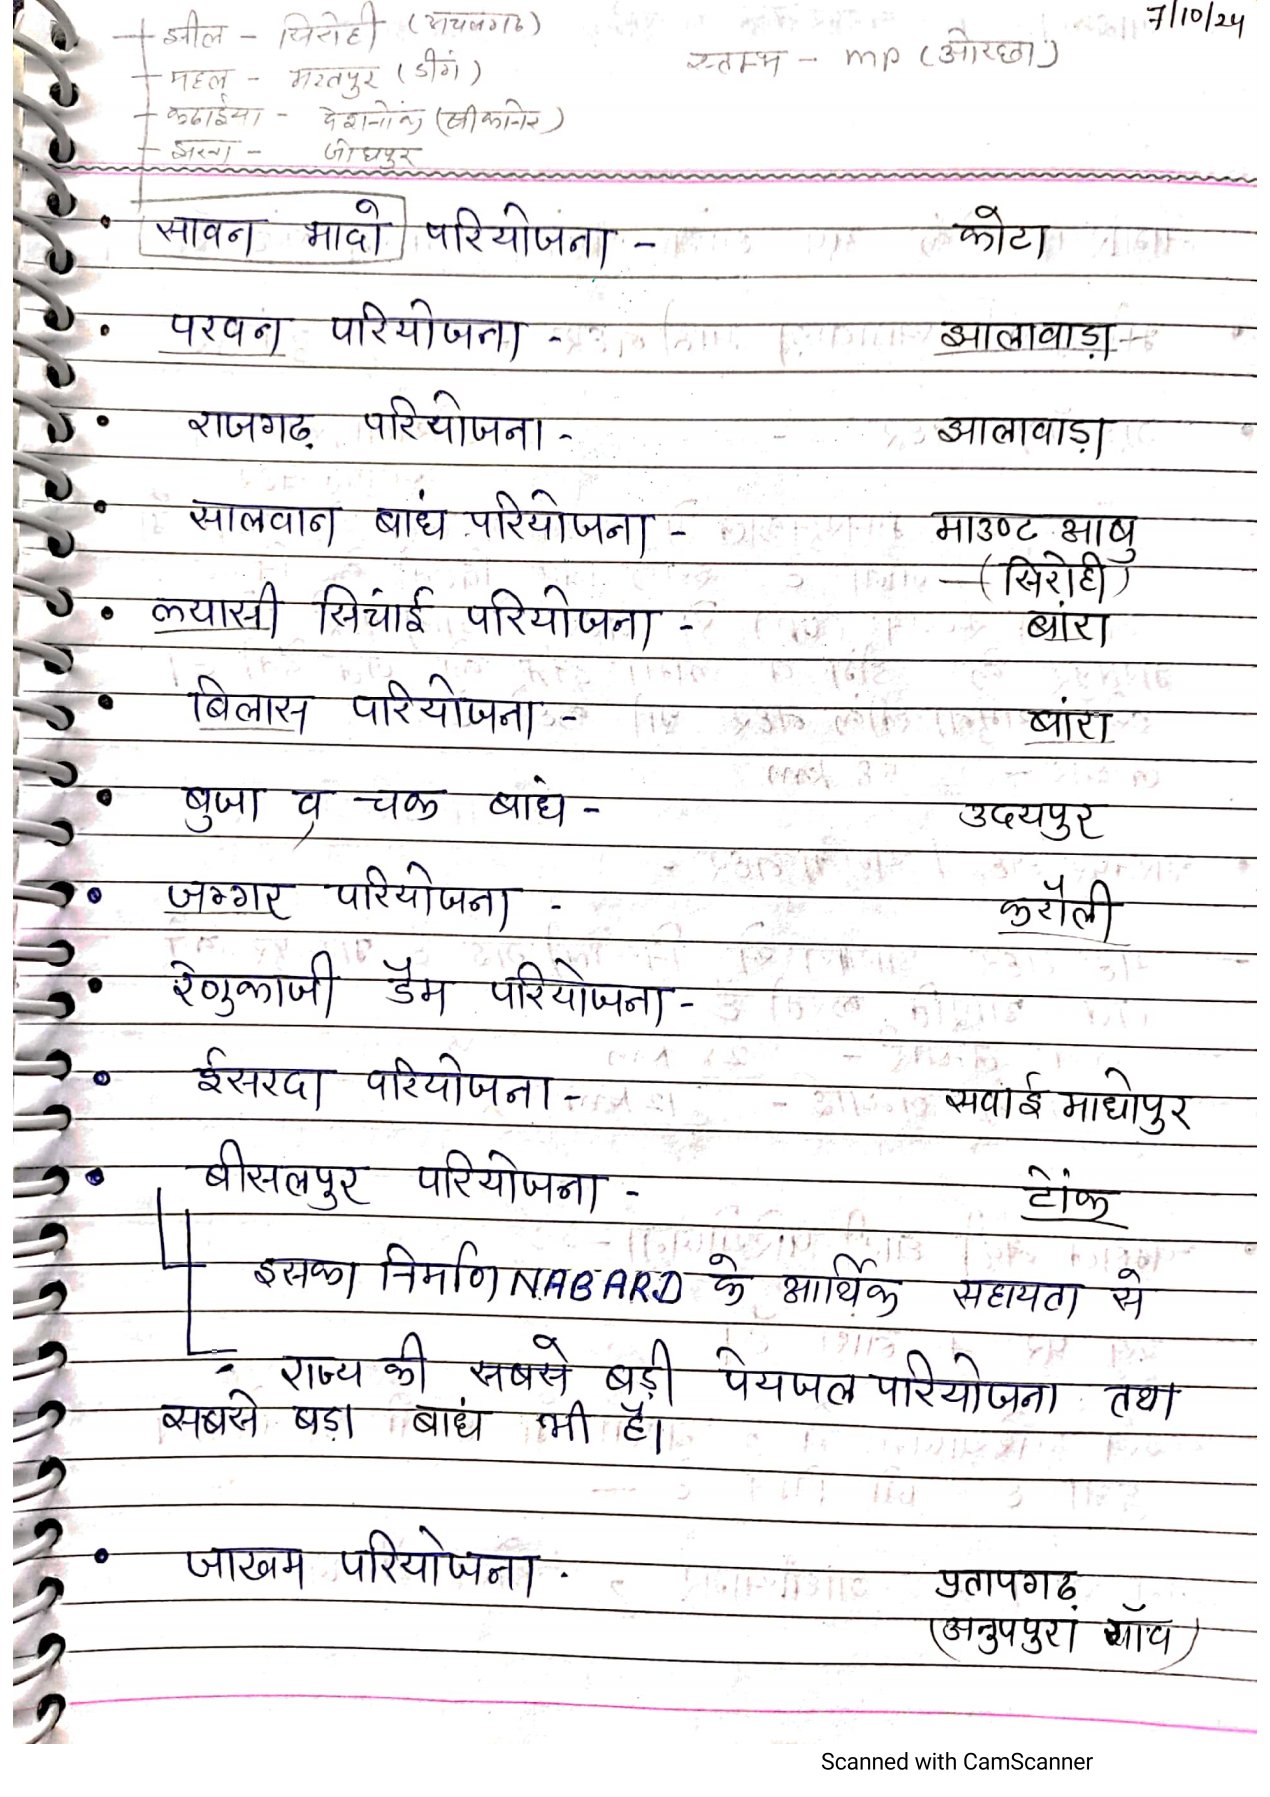 7/10/24
झील - सिरोही (अचलगढ)
स्तम्भ - mp (ओरछा)
महल - भरतपुर (डीग)
कढाईया - देशनोक (बीकानेर)
झरना - जोधपुर
• सावन भादो परियोजना - कोटा
• परवन परियोजना - झालावाड़
• राजगढ़ परियोजना - झालावाड़
• सालवान बांध परियोजना - माउण्ट आबु
(सिरोही)
• ल्यासी सिचांई परियोजना - बांरा
• बिलास परियोजना - बांरा
• बुजा व चक बांध - उदयपुर
• जग्गर परियोजना - करौली
• रेणुकाजी डैम परियोजना -
• ईसरदा परियोजना - सवाई माधोपुर
• बीसलपुर परियोजना - टोंक
इसका निर्माण NABARD के आर्थिक सहायता से
- राज्य की सबसे बड़ी पेयजल परियोजना तथा
सबसे बड़ा बांध भी है।
• जाखम परियोजना - प्रतापगढ़
(अनुपपुरा गाँव)
Scanned with CamScanner